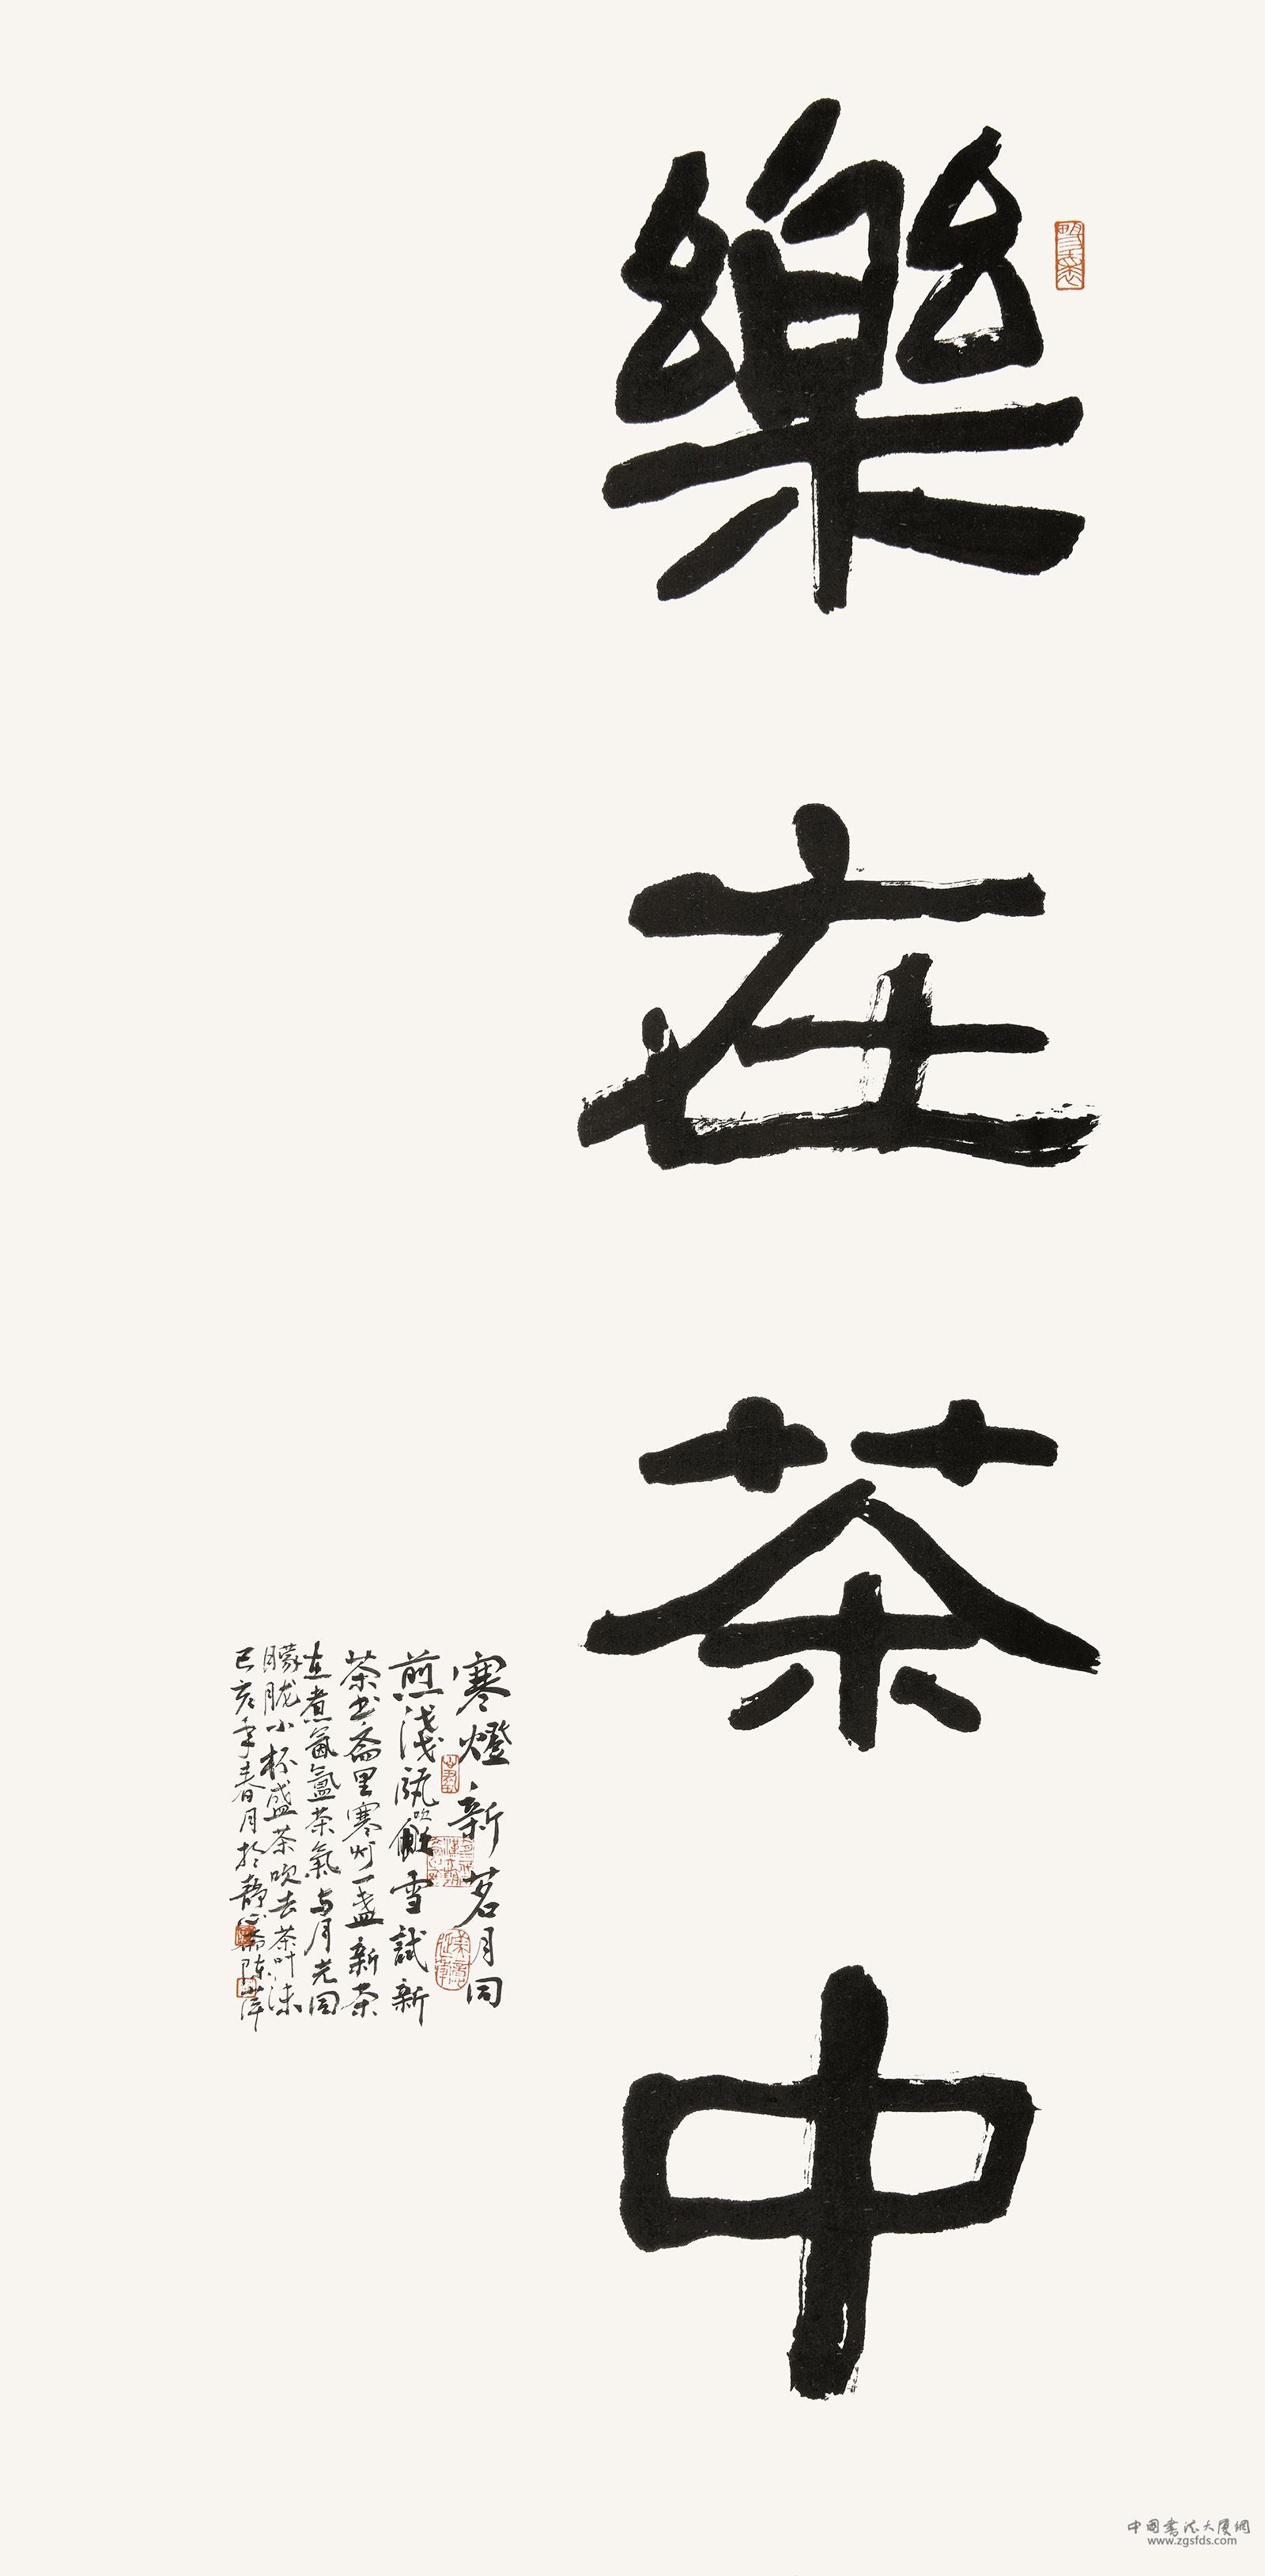 樂在茶中
寒燈新茗月同
煎淺甌吹雪試新
茶書斋里寒灯一盏新茶
在煮氤氲茶氣与月光同
朦胧小杯盛茶吹去茶叶沫
己亥年春月於静心斋陈萍
中国書法大厦網
www.zgsfds.com